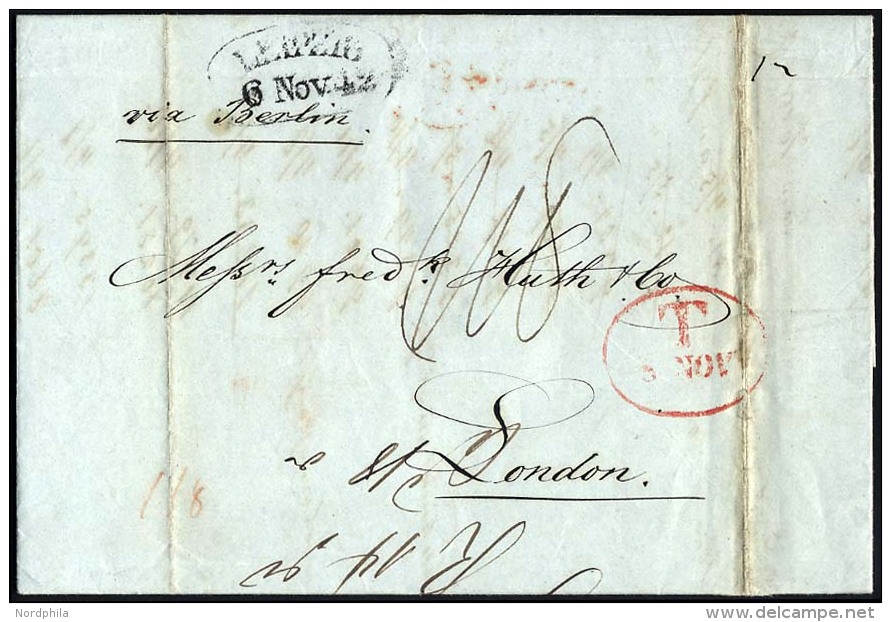 LEIPZIG
6 Nov. 42
via Berlin.
Messrs fredk Huth & Co
T
NOV
London.
1/8
Nordphila
www.delcampe.net